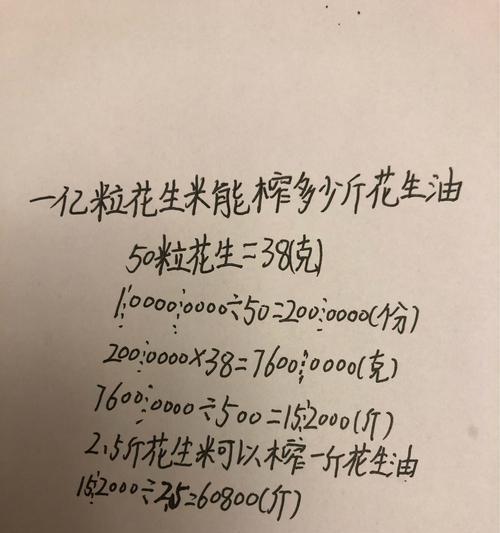 一亿粒花生米能榨多少斤花生油
50粒花生=38(克)
1⋮0000⋮0000÷50=200⋮0000(份)
200⋮0000×38=7600⋮0000(克)
7600⋮0000÷500=15⋮2000(斤)
2.5斤花生米可以榨一斤花生油
15⋮2000÷2.5=60800(斤)